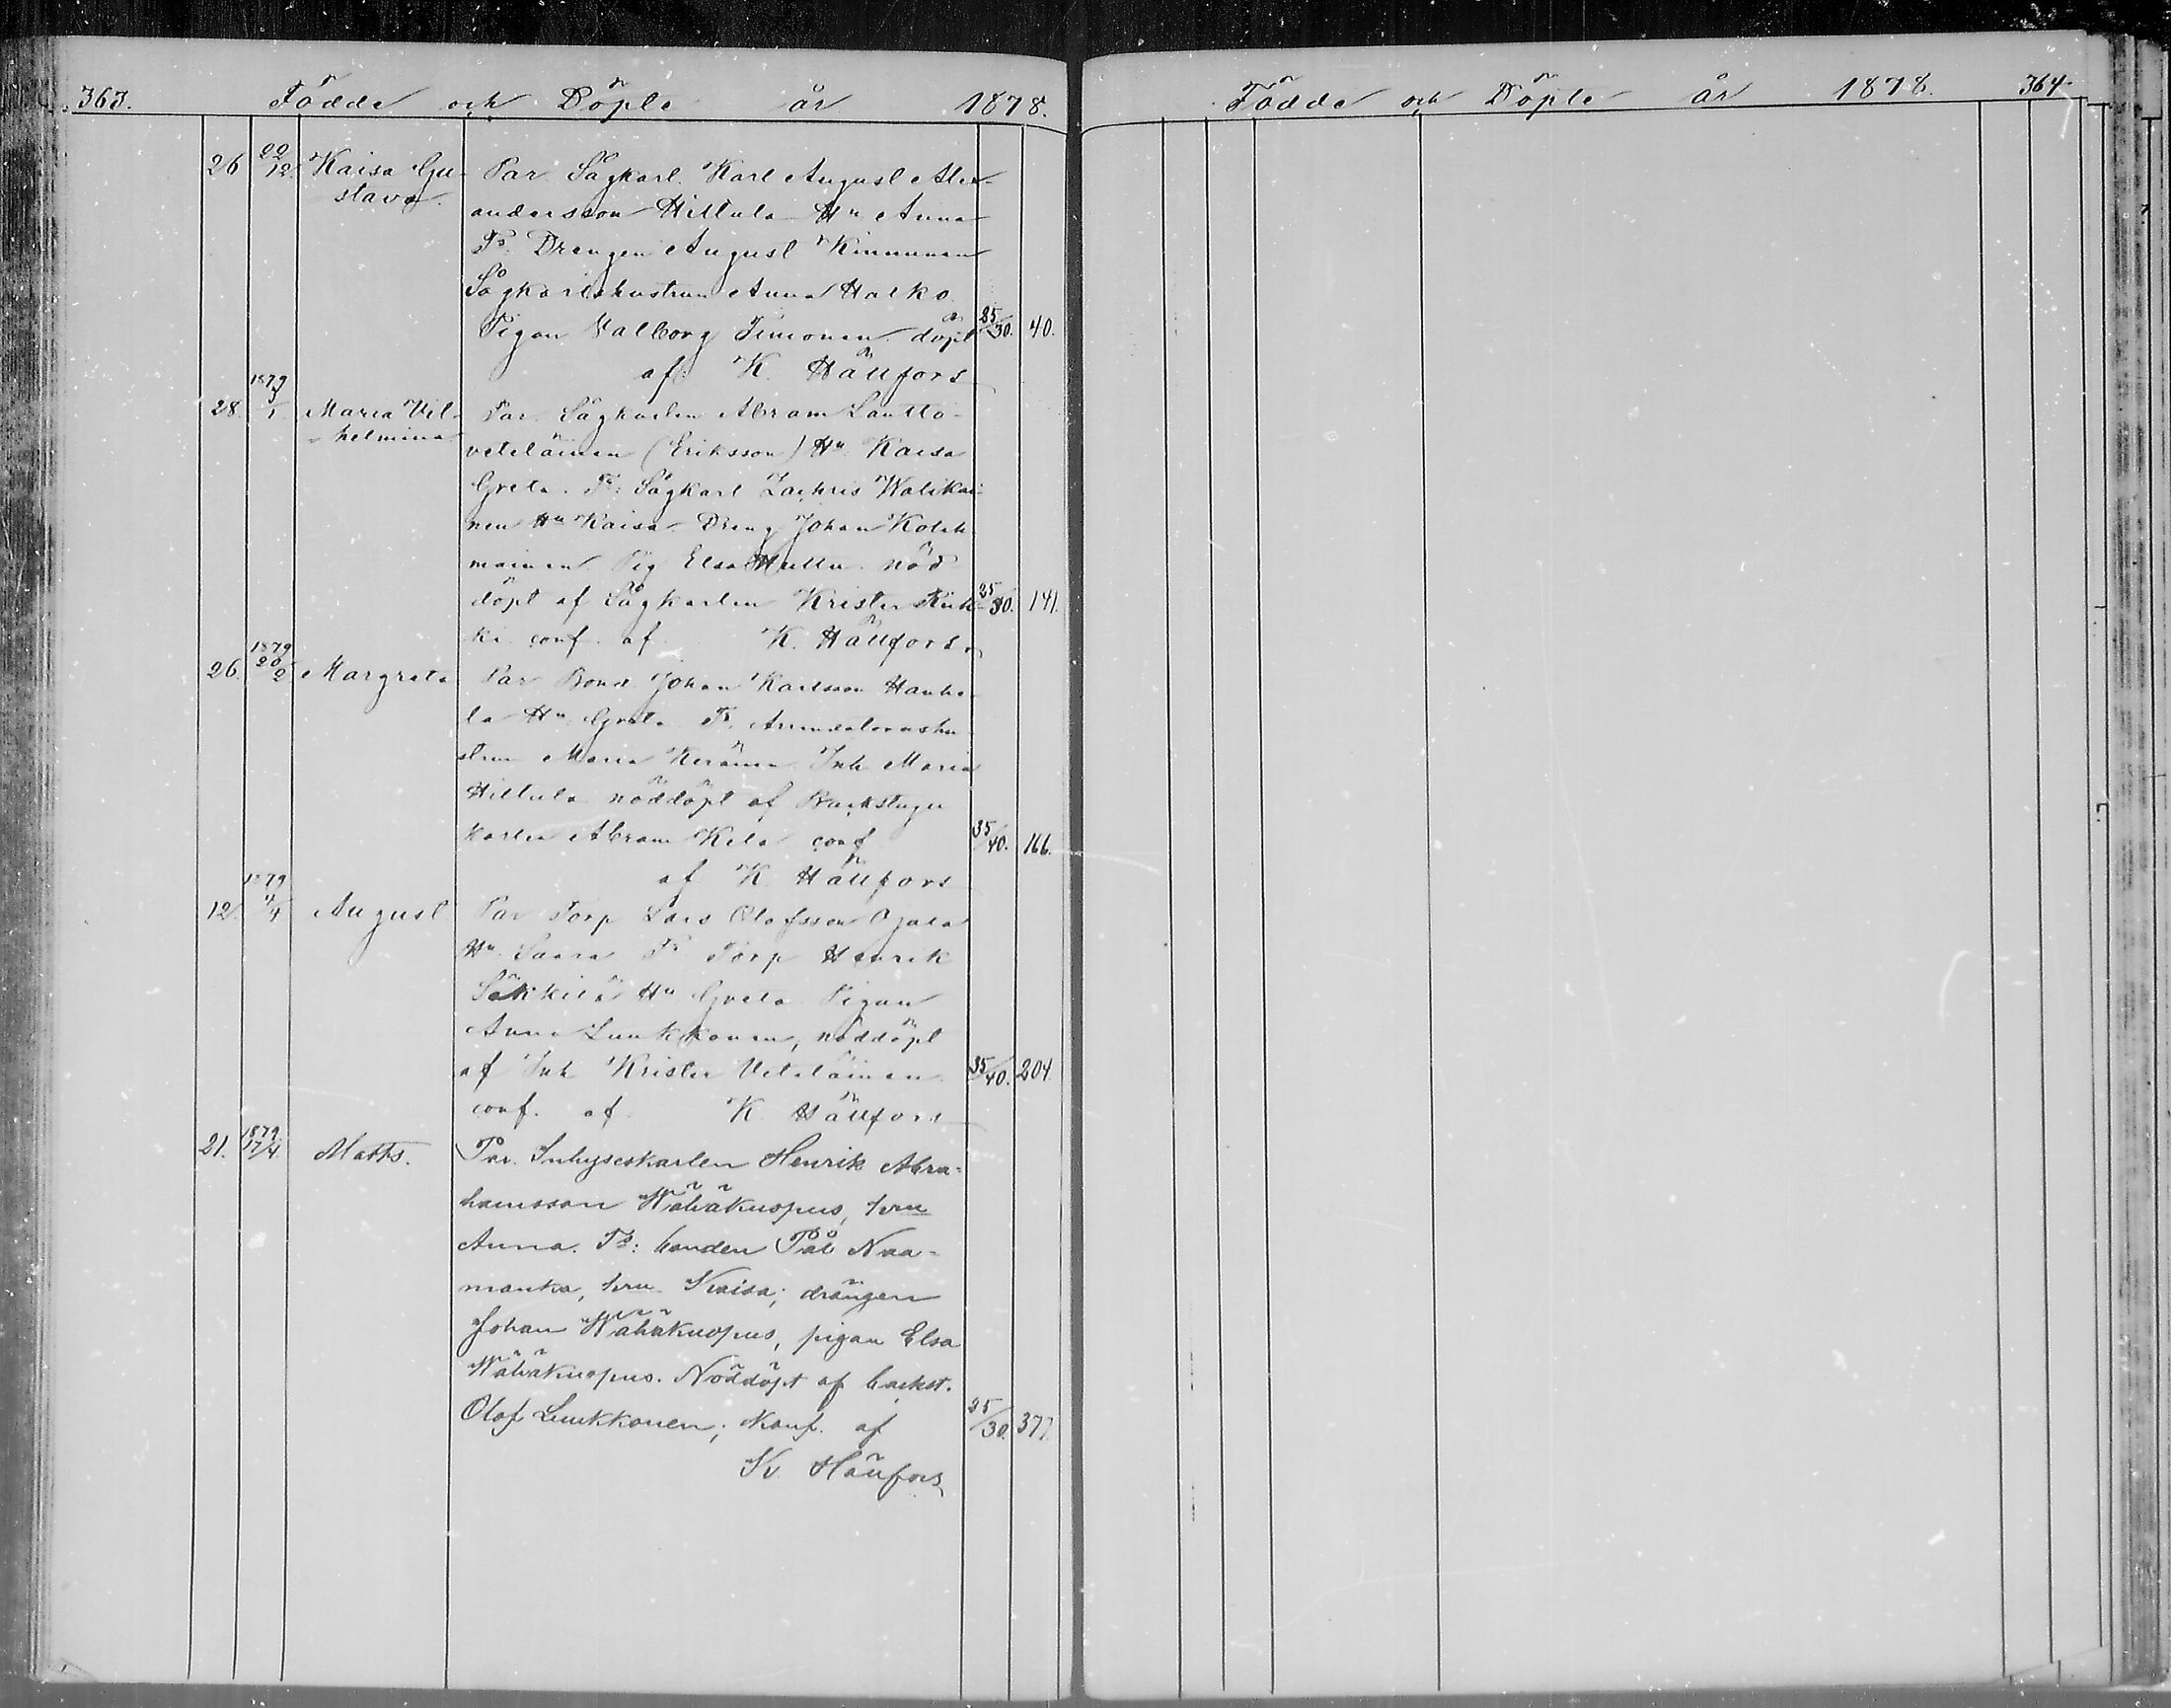 363. Födde och Döpte år 1878.
26 22/12 Kaisa Gu- Par. Sågkarl. Karl August Alex-
stava. andersson Hiltula Hu Anna
Fr. Drengen August Kinnunen
Sågkarlshustrun Anna Halko
Pigan Valborg Timonen döpt 25/30. 40.
af K. Hällfors
1879
28. 3/1. Maria Vil- Par. Sågkarlen Abram Lautto-
helmina veteläinen (Eriksson) Hu Kaisa
Greta. Fr: Sågkarl Zachris Walikai-
nen Hu Kaisa Dreng Johan Koleh-
mainen Pig Elsa Huttu nöd
döpt af Sågkarlen Krister 25/30. 141.
ki conf. af K. Hällfors.
1879
26. 20/2 Margreta Par Bond Johan Karlsson Hauka-
la Hu Greta Fr.
strun Maria Keränen Inh Maria
Hiltula nöddöpt af Backstugu
karlen Abram Kela conf 35/40. 166.
af K Hällfors
1879
12. 4/4 August Par Torp Lars Olofsson Ojala
Hu Saara Fr Torp Henrik
Säkkilä Hu Greta Pigan
Anna Luukkonen, nöddöpt
af Inh Krister Veteläinen 35/40. 204.
conf. af K. Hällfors
1879
21. 17/4. Matts. Par. Inhyseskarlen Henrik Abra-
hamsson Wähäkuopus, hru
Anna. Fr: bonden Pål Naa-
manka, hru Kaisa; drängen
Johan Wähäkuopus, pigan Elsa
Wähäkuopus. Nöddöpt af backst.
Olof Luukkonen; konf. af 25/30. 377.
K. Hällfors
Födde och Döpte år 1878. 364.